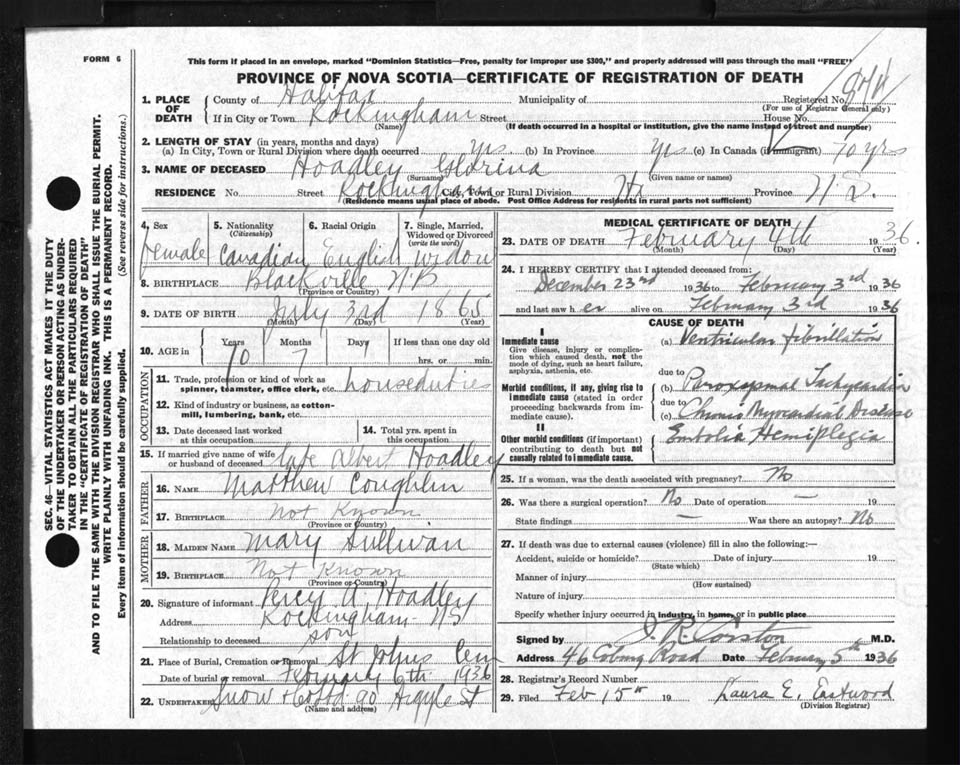 FORM 6
This form if placed in an envelope, marked "Dominion Statistics—Free, penalty for improper use $300," and properly addressed will pass through the mail "FREE"
PROVINCE OF NOVA SCOTIA—CERTIFICATE OF REGISTRATION OF DEATH
1. PLACE OF DEATH
County of Halifax Municipality of Registered No.
(For use of Registrar General only)
If in City or Town Rockingham Street House No.
(Name) (If death occurred in a hospital or institution, give the name instead of street and number)
2. LENGTH OF STAY (in years, months and days)
(a) In City, Town or Rural Division where death occurred yrs. (b) In Province yrs (c) In Canada (if immigrant) 70 yrs
3. NAME OF DECEASED Hoadley Glorina
(Surname) (Given name or names)
RESIDENCE No Street Rockingham City, Town or Rural Division Hx Province N.S.
(Residence means usual place of abode. Post Office Address for residents in rural parts not sufficient)
4. Sex female
5. Nationality (Citizenship) Canadian
6. Racial Origin English
7. Single, Married, Widowed or Divorced (write the word) widow
8. BIRTHPLACE Blackville N.B
(Province or Country)
9. DATE OF BIRTH July 3rd 1865
(Month) (Day) (Year)
10. AGE in Years 70 Months 7 Days 1 If less than one day old
hrs. or min.
OCCUPATION
11. Trade, profession or kind of work as spinner, teamster, office clerk, etc. houseduties
12. Kind of industry or business, as cotton-mill, lumbering, bank, etc.
13. Date deceased last worked at this occupation
14. Total yrs. spent in this occupation
15. If married give name of wife or husband of deceased late Albert Hoadley
FATHER
16. NAME Matthew Coughlin
17. BIRTHPLACE Not Known
(Province or Country)
MOTHER
18. MAIDEN NAME Mary Sullivan
19. BIRTHPLACE Not Known
(Province or Country)
20. Signature of informant Percy A. Hoadley
Address Rockingham NS
Relationship to deceased son
21. Place of Burial, Cremation or Removal St Johns Cem
Date of burial or removal February 6th 1936
22. UNDERTAKER Snow & Co Ltd 90 Argyle St
(Name and address)
MEDICAL CERTIFICATE OF DEATH
23. DATE OF DEATH February 4th 1936.
(Month) (Day) (Year)
24. I HEREBY CERTIFY that I attended deceased from:
December 23rd 1936 to February 3rd 1936
and last saw her alive on February 3rd 1936
CAUSE OF DEATH
I
Immediate cause
Give disease, injury or complication which caused death, not the mode of dying, such as heart failure, asphyxia, asthenia, etc.
(a) Ventricular fibrillation
due to
Morbid conditions, if any, giving rise to immediate cause (stated in order proceeding backwards from immediate cause).
(b) Paroxysmal Tachycardia
due to
(c) Chronic Myocardial Disease
II
Other morbid conditions (if important) contributing to death but not causally related to immediate cause.
Embolia Hemiplegia
25. If a woman, was the death associated with pregnancy? No
26. Was there a surgical operation? No Date of operation — 19
State findings — Was there an autopsy? No
27. If death was due to external causes (violence) fill in also the following:—
Accident, suicide or homicide? Date of injury 19
(State which)
Manner of injury
(How sustained)
Nature of injury
Specify whether injury occurred in industry, in home, or in public place
Signed by J. R. Corston M.D.
Address 46 Coburg Road Date February 5th 1936
28. Registrar's Record Number
29. Filed Feb 15th 19 Laura E. Eastwood
(Division Registrar)
SEC. 46—VITAL STATISTICS ACT MAKES IT THE DUTY
OF THE UNDERTAKER OR PERSON ACTING AS UNDERTAKER TO OBTAIN ALL THE PARTICULARS REQUIRED
IN THE "CERTIFICATE OF REGISTRATION OF DEATH"
AND TO FILE THE SAME WITH THE DIVISION REGISTRAR WHO SHALL ISSUE THE BURIAL PERMIT.
WRITE PLAINLY WITH UNFADING INK. THIS IS A PERMANENT RECORD.
Every item of information should be carefully supplied. (See reverse side for instructions.)